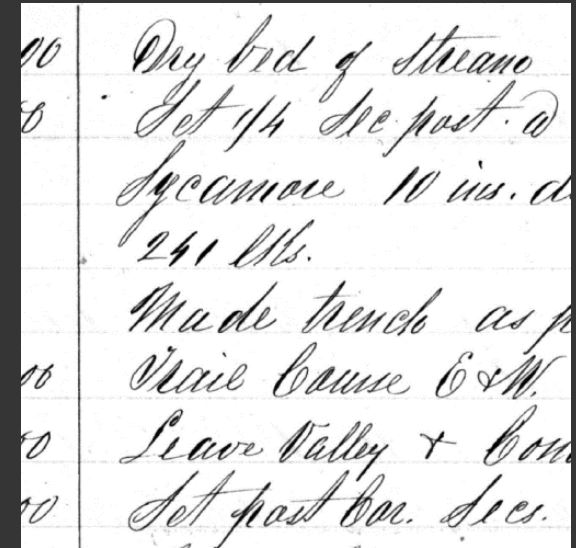 00 Dry bed of stream
Set 1/4 Sec. post. a
Sycamore 10 ins. d
241 lks.
Made trench as p
00 Trail Course E & W.
00 Leave Valley & Com
00 Set post Cor. Secs.